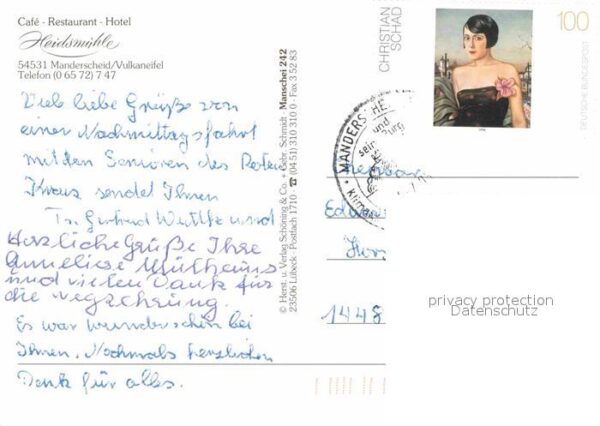 Café - Restaurant - Hotel
Heidsmühle
54531 Manderscheid/Vulkaneifel
Telefon (0 65 72) 7 47
Viele liebe Grüße von
einer Nachmittagsfahrt
mit den Senioren des Roten
Kreuz sendet Ihnen
Gertrud und
Herzliche Grüße Ihre
Anneliese Mülhams
und vielen Dank für
die
Es war wunderschön bei
Ihnen. Nochmals herzlichen
Dank für alles.
© Herst. u. Verlag Schöning & Co. + Gebr. Schmidt · Manschei 242
23506 Lübeck · Postfach 1710 · ☎ (04 51) 310 310 0 · Fax 3 52 83
CHRISTIAN
SCHAD
100
DEUTSCHE BUNDESPOST
MANDERSCHE
und
sein
urg
Klim
1448
privacy protection
Datenschutz